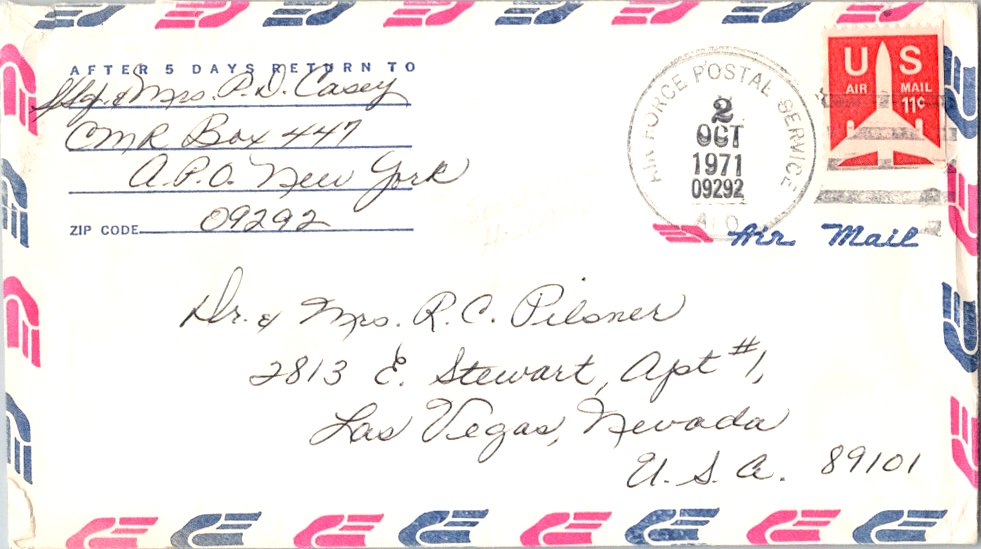 AFTER 5 DAYS RETURN TO
Sgt. & Mrs. P. D. Casey
CMR Box 447
A.P.O. New York
ZIP CODE 09292
AIR FORCE POSTAL SERVICE
2
OCT
1971
09292
APO
US
AIR MAIL
11¢
Air Mail
Dr. & Mrs. R. C. Pilsner
2813 E. Stewart, Apt #1,
Las Vegas, Nevada
U. S. A. 89101